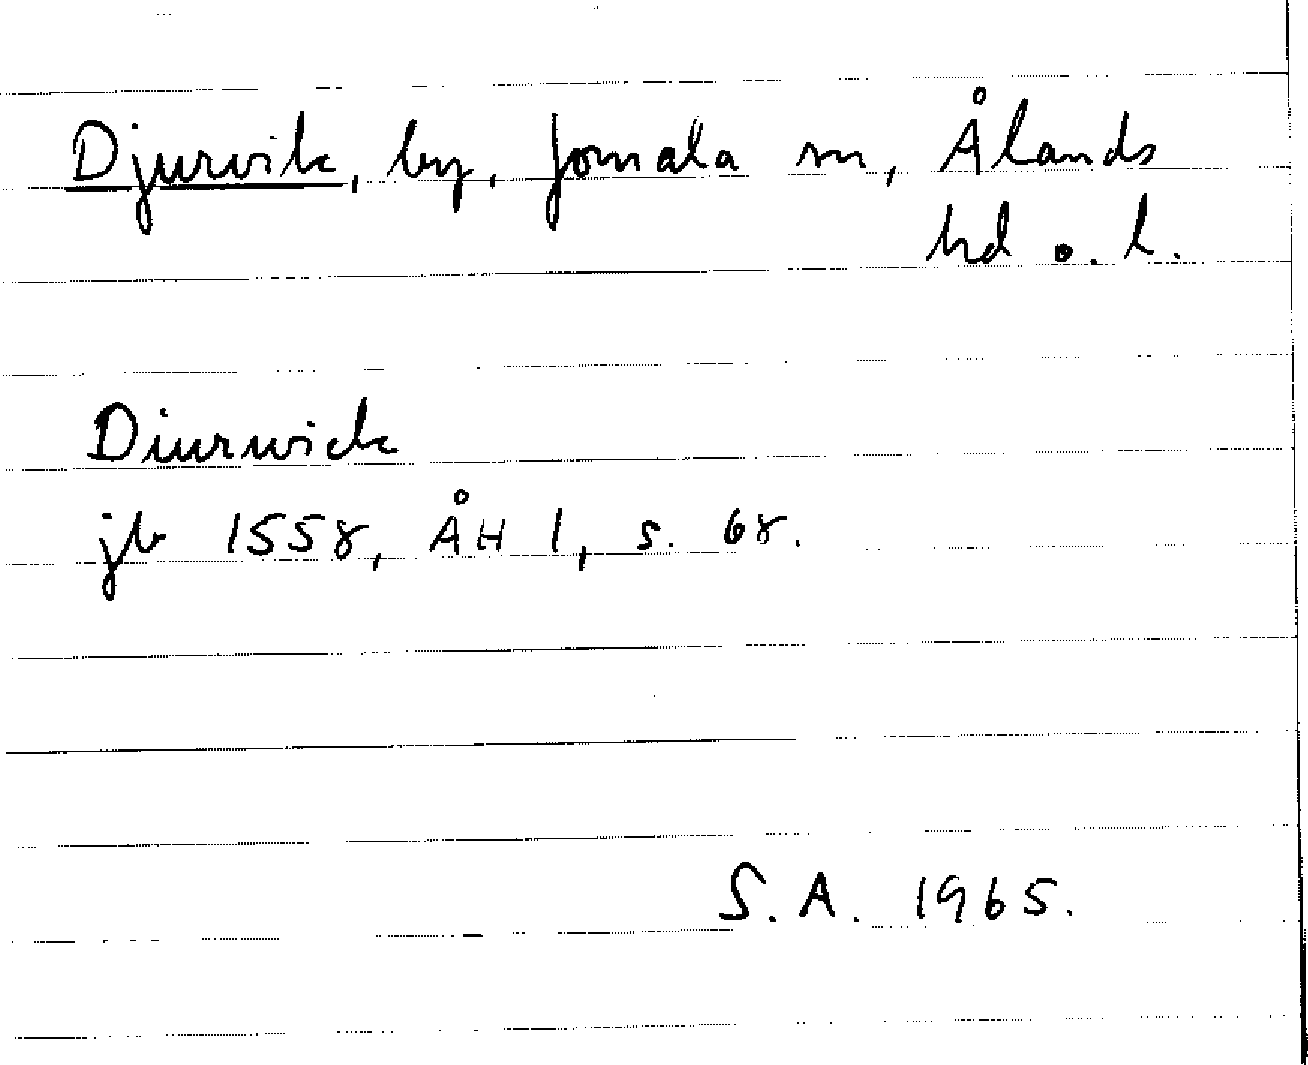 Djurvik, by, Jomala sn, Ålands
hd o. l.
Diurwick
jb 1558, ÅH 1, s. 68.
S. A. 1965.